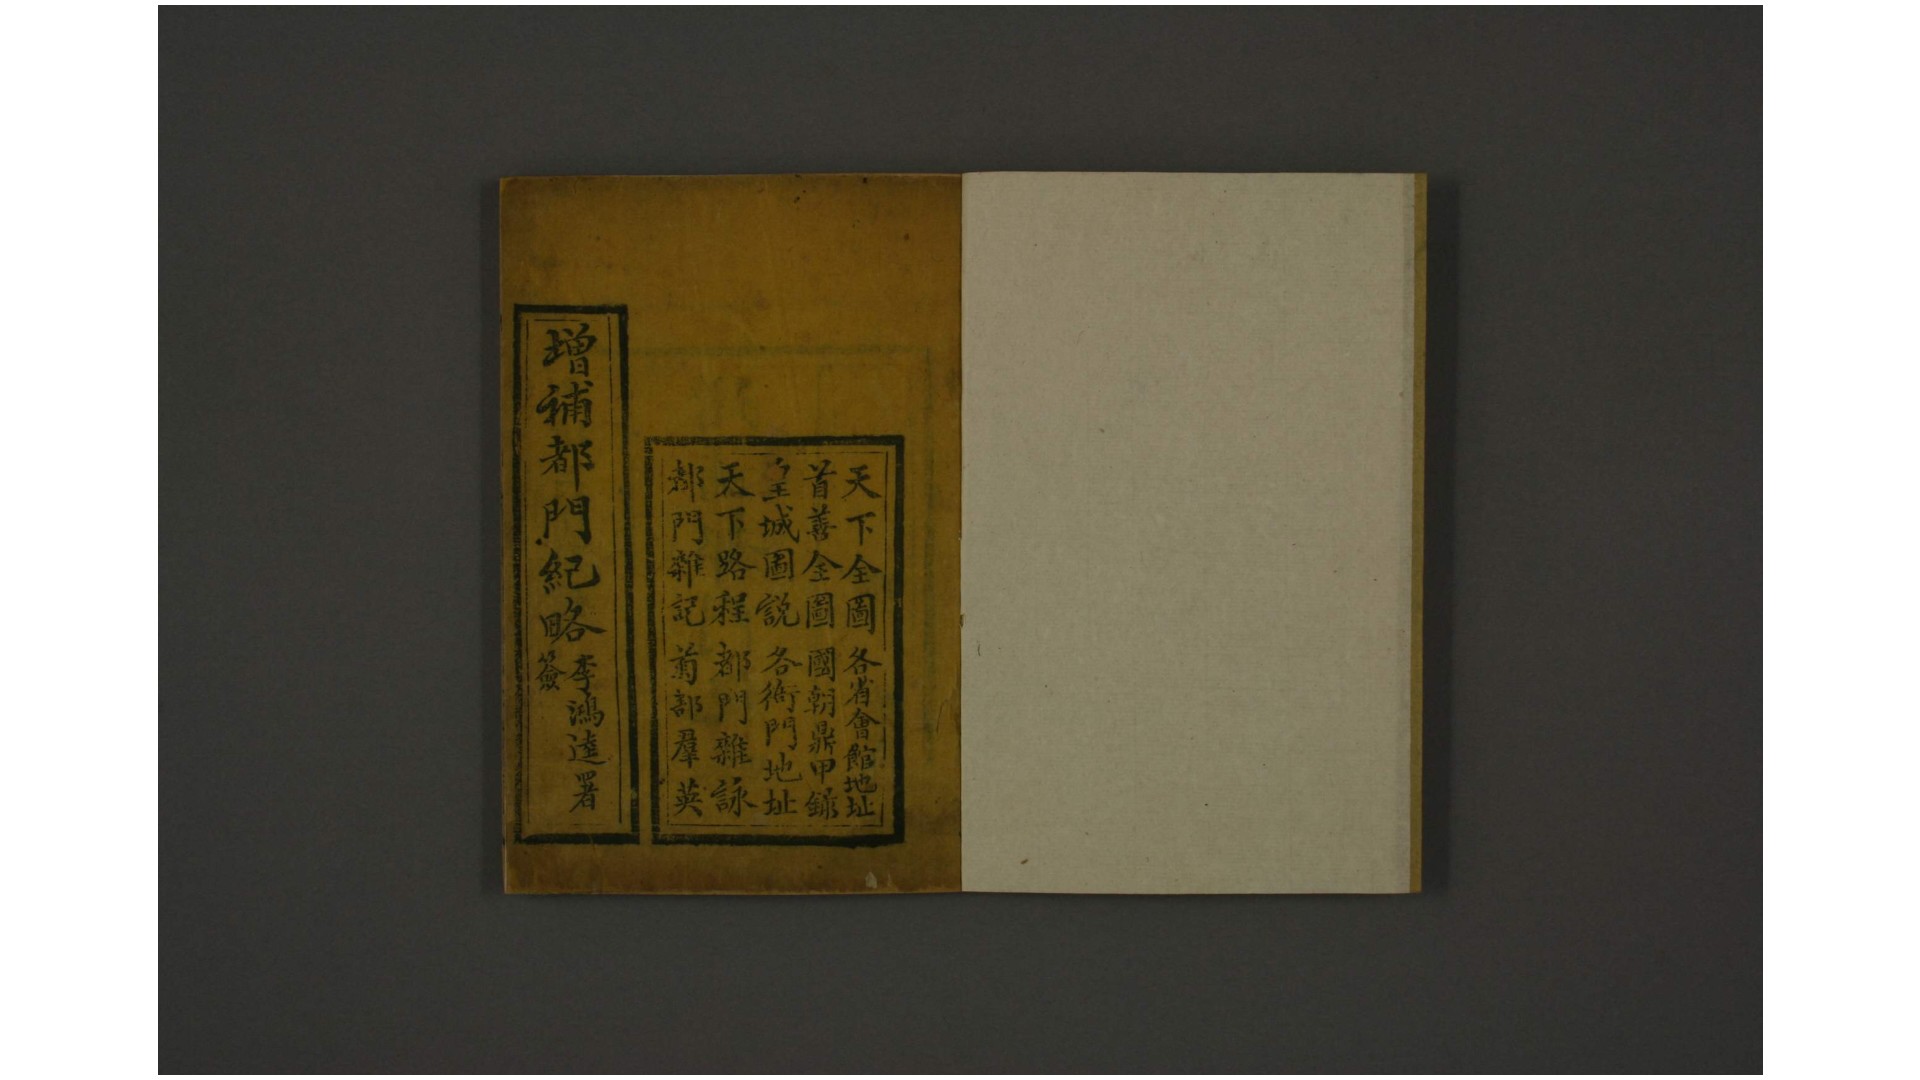 天下全圖 各省會館地址
首善全圖 國朝鼎甲錄
皇城圖説 各衙門地址
天下路程 都門雜詠
都門雜記 菊部羣英
增補都門紀略
李鴻逵署
簽